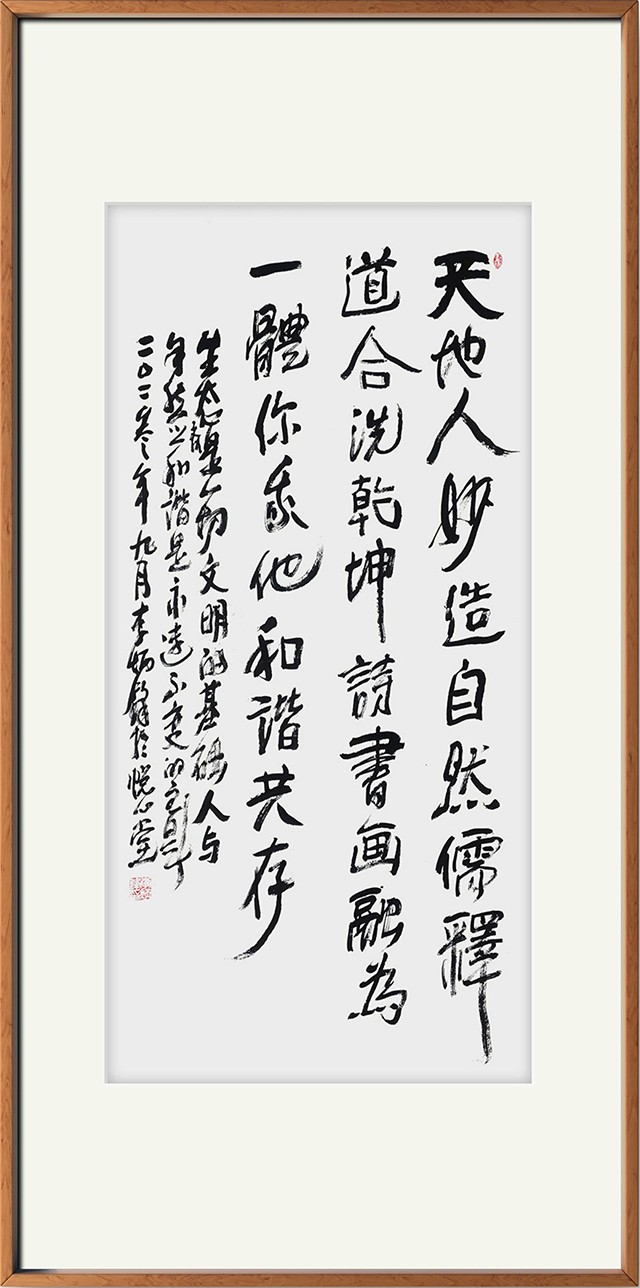 天地人妙造自然儒釋
道合洗乾坤詩書画融為
一體你我他和諧共存
生态是一切文明的基础人与
自然之和谐是永远不变的主题
二〇二零年九月李炳於悦心堂